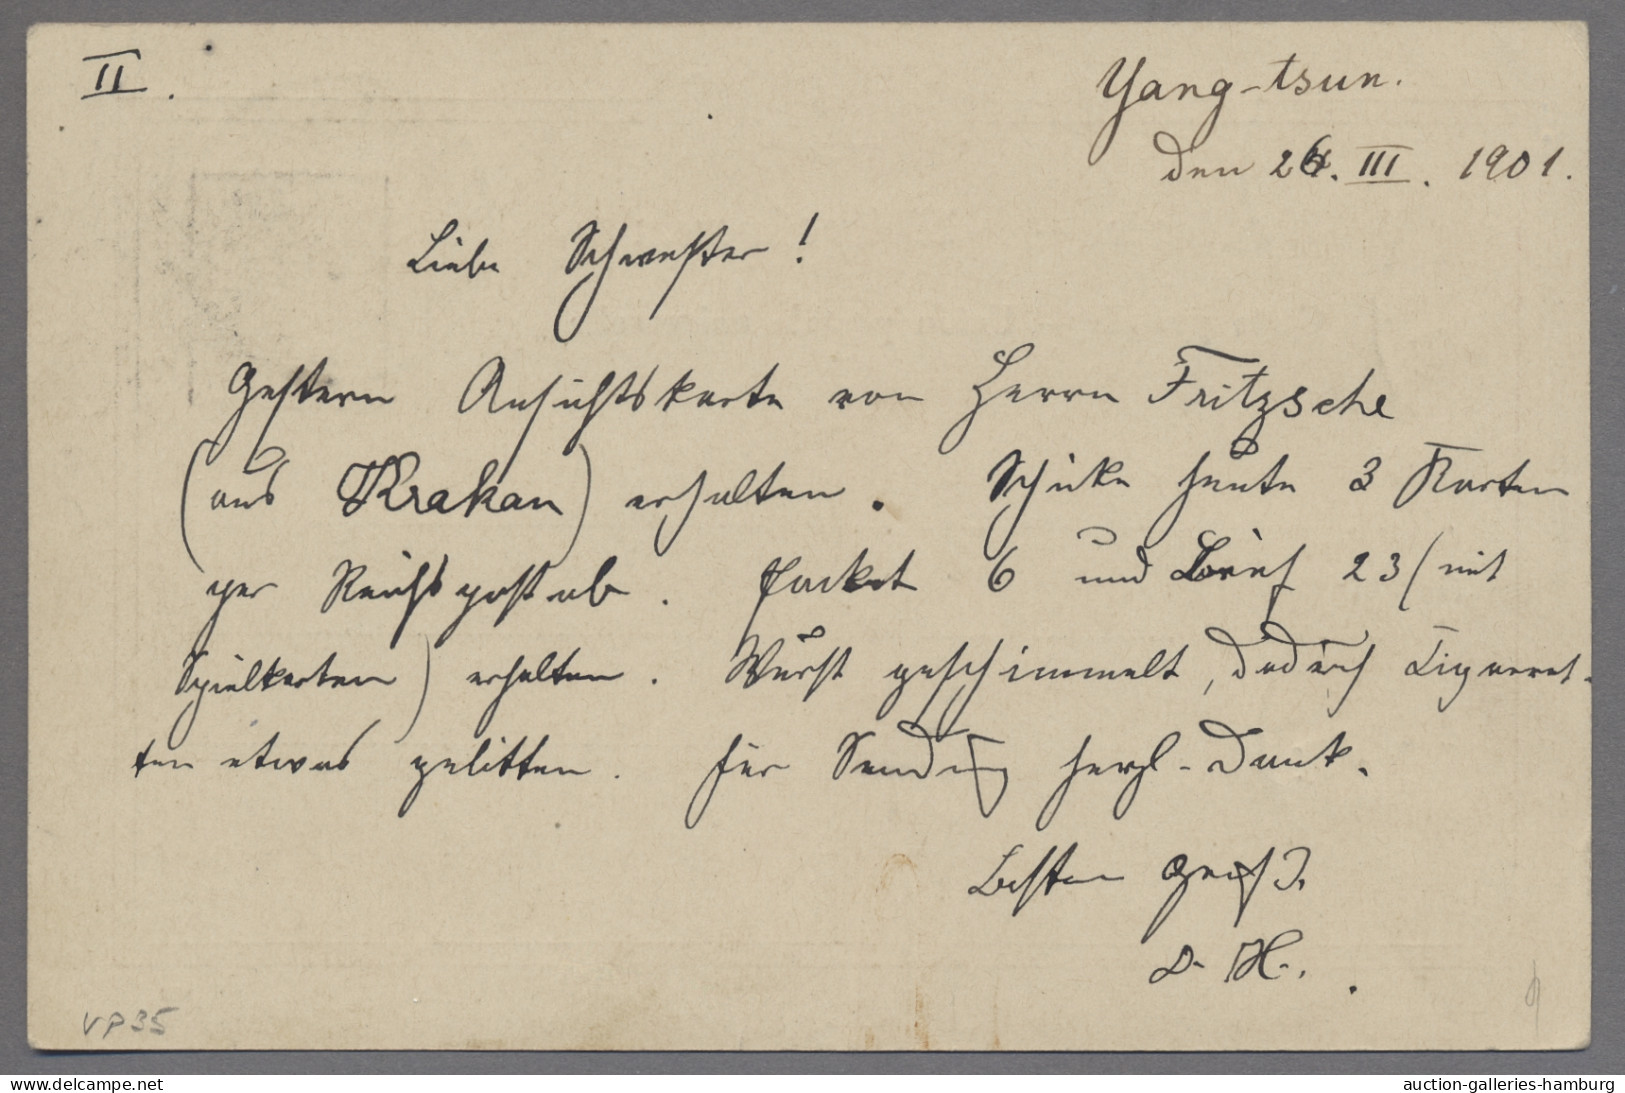 II.
Yang-tsun.
den 26. III. 1901.
Liebe Schwester!
Gestern Ansichtskarte von Herrn Fritzsche
(aus Krakau) erhalten. Schicke heute 3 Karten
per Reichspost ab. Packet 6 und Brief 23 (mit
Spielkarten) erhalten. Wurst geschimmelt, dadurch Cigaret-
ten etwas gelitten. Für Sendung herzl. Dank.
Besten Gruß
D. H.
VP35
www.delcampe.net
auction-galleries-hamburg